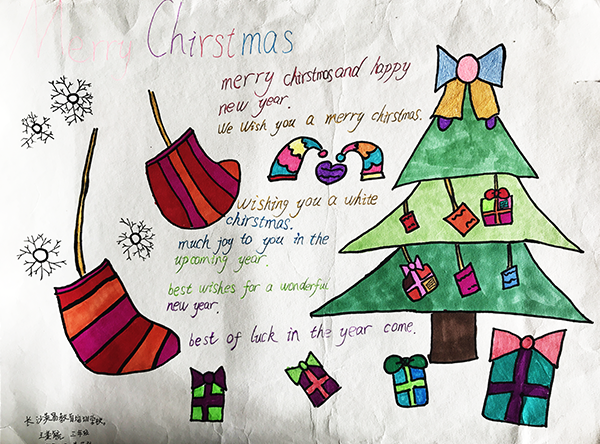 Merry Chirstmas
merry chirstmas and happy
new year.
We wish you a merry chirstmas.
wishing you a white
chirstmas.
much joy to you in the
upcoming year.
best wishes for a wonderful
new year.
best of luck in the year come.
长沙